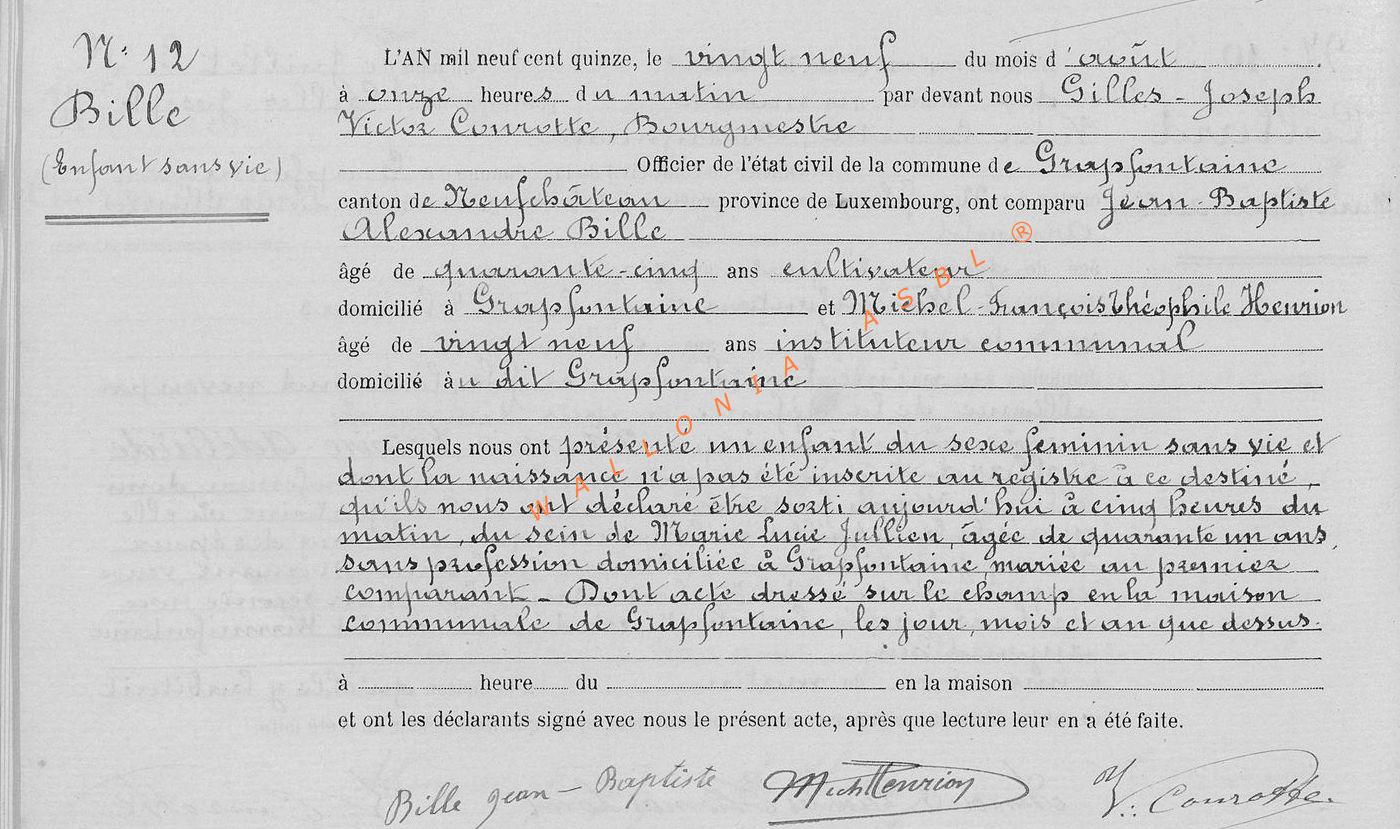 N° 12
Bille
(Enfant sans vie)
L'AN mil neuf cent quinze, le vingt neuf du mois d'août
à onze heures du matin par devant nous Gilles-Joseph
Victor Conrotte, Bourgmestre
Officier de l'état civil de la commune de Grapfontaine
canton de Neufchâteau province de Luxembourg, ont comparu Jean-Baptiste
Alexandre Bille
âgé de quarante-cinq ans cultivateur
domicilié à Grapfontaine et Michel-François Théophile Henrion
âgé de vingt neuf ans instituteur communal
domicilié au dit Grapfontaine
Lesquels nous ont présenté un enfant du sexe feminin sans vie et
dont la naissance n'a pas été inscrite au registre à ce destiné,
qu'ils nous ont déclaré être sorti aujourd'hui à cinq heures du
matin, du sein de Marie Lucie Jullien, âgée de quarante un ans,
sans profession domiciliée à Grapfontaine, mariée au premier
comparant. Dont acte dressé sur le champ en la maison
communale de Grapfontaine, les jour, mois et an que dessus.
à heure du en la maison
et ont les déclarants signé avec nous le présent acte, après que lecture leur en a été faite.
Bille Jean-Baptiste Mich Henrion V. Conrotte.
WALLONIA ASBL ®